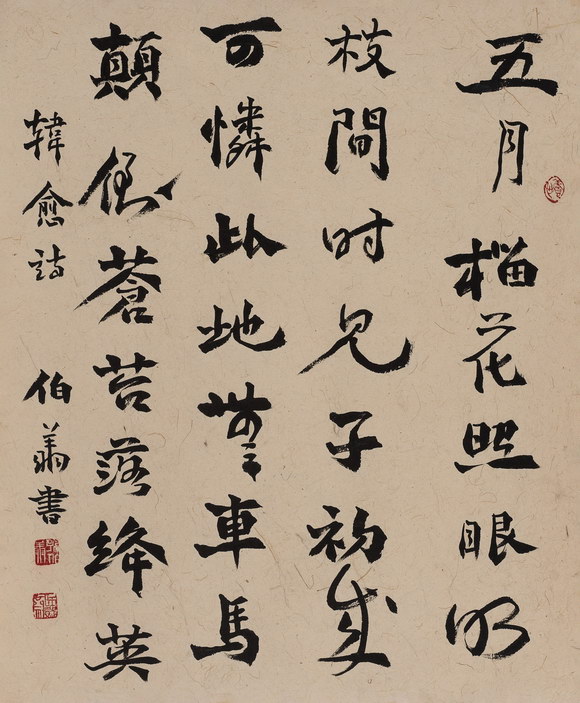 五月榴花照眼明
枝間时見子初成
可憐此地無車馬
顛倒蒼苔落絳英
韓愈詩 伯 書